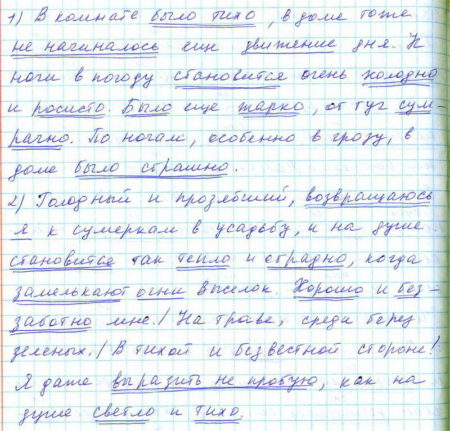 1) В комнате было тихо, в доме тоже
не начиналось еще движение дня. К
ночи в погоду становится очень холодно
и росисто. Было еще жарко, от туч сум-
рачно. По ночам, особенно в грозу, в
доме было страшно.
2) Голодный и прозябший, возвращаюсь
я к сумеркам в усадьбу, и на душе
становится так тепло и отрадно, когда
замелькают огни Выселок. Хорошо и без-
заботно мне./ На траве, среди берез
зеленых./ В тихой и безвестной стороне!
Я даже выразить не пробую, как на
душе светло и тихо.